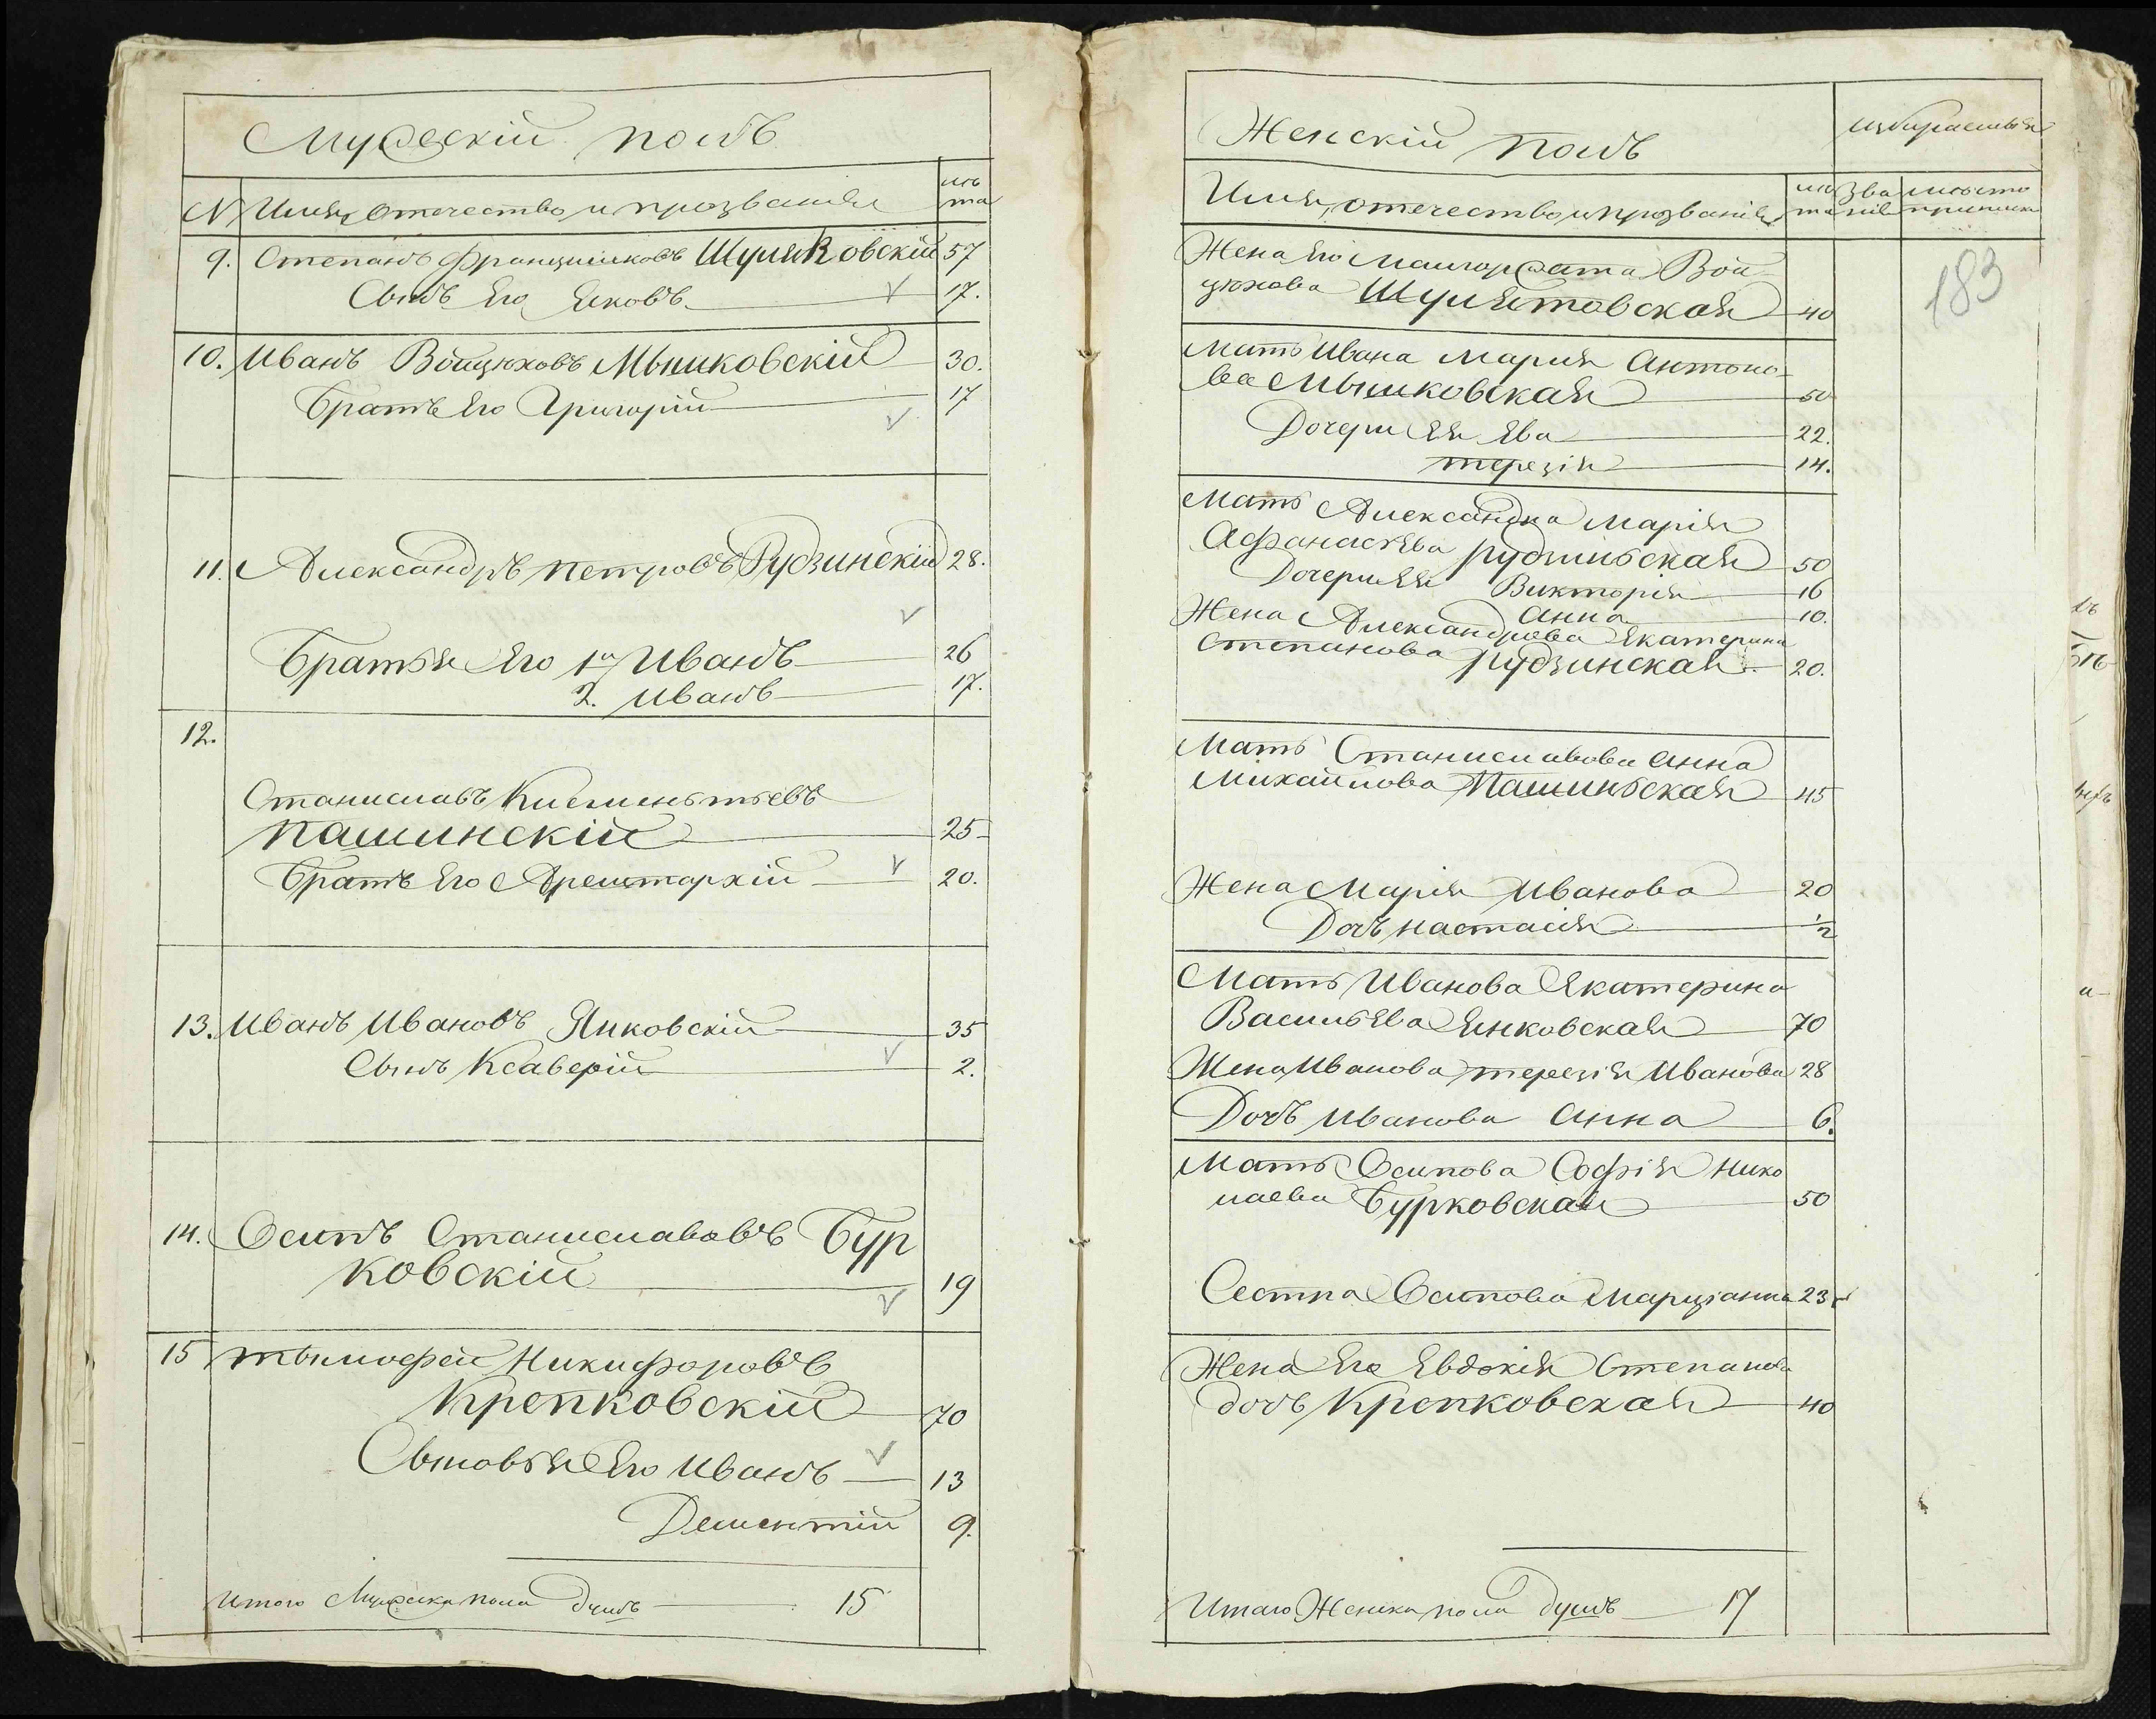 Мужескій полъ
№ Имя, отечество и прозваніе лѣта
9. Степанъ Францишковъ Шуляковскій 57
Сынъ Его Яковъ 17.
10. Иванъ Войцѣховъ Мышковскій 30.
Братъ Его Григорій 17
11. Александръ Петровъ Рудзинскій 28.
Братья Его 1й Иванъ 26
2. Иванъ 17.
12.
Станиславъ Клементьевъ
Пашинскій 25
Братъ Его 20.
13. Иванъ Ивановъ Янковскій 35
Сынъ Ксаверій 2.
14. Осипъ Станиславовъ Бур
ковскій 19
15 Тымофей Никифоровъ
Крепковскій 70
Сыновья Его Иванъ 13
Дементій 9.
Итого Мужеска пола душъ 15
Женскій полъ
Имя, отечество и прозваніе лѣта Званіе мѣсто
183
Жена Его Малгоржата Вой
цѣхова 40
Мать Ивана Марія Антоно
ва Мышковская 50
Дочери Ея Ева 22.
Терезія 14.
Мать Александра Марія
Афанасьева Рудзинская 50
Дочери Ея Викторія 16
Анна 10.
Жена Александрова Екатерина
Степанова Рудзинская 20.
Мать Станиславова Анна
Михайлова Пашинская 45
Жена Марія Иванова 20
Дочь Настасія 1/2
Мать Иванова Екатерина
Васильева Янковская 70
Жена Иванова Терезія Иванова 28
Дочь Иванова Анна 6.
Мать Осипова Софія Нико
лаева Бурковская 50
Сестра Осипова Марціанна 23
Жена Его Евдокія Степанова
дочь Крепковская 40
Итого Женска пола душъ 17